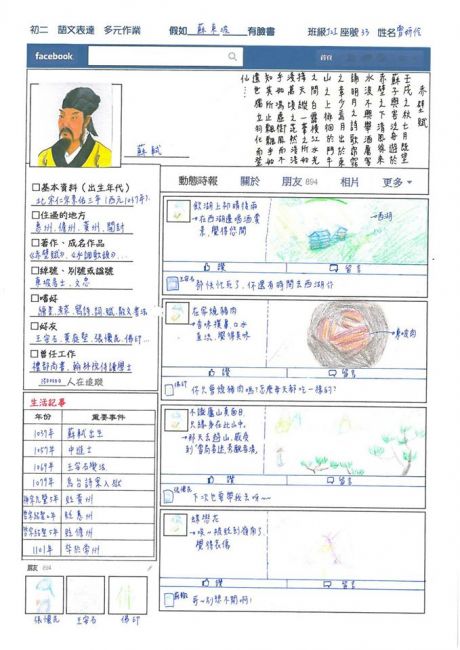 初二 語文表達 多元作業 假如 蘇東坡 有臉書 班級 座號 33 姓名
facebook
赤壁賦
壬戌之秋七月既望
蘇子與客泛舟遊於
赤壁之下清風徐來
水波不興舉酒屬客
誦明月之詩歌窈窕
之章少焉月出於東
山之上徘徊於斗牛
之間白露橫江水光
接天縱一葦之所如
凌萬頃之茫然浩浩
乎如馮虛御風而不
知其所止飄飄乎如
遺世獨立羽化而登
仙…
蘇軾
動態時報 關於 朋友 894 相片 更多
□基本資料(出生年代)
北宋仁宗景祐三年(西元1037年)
□住過的地方
惠州、儋州、黃州、開封
□著作、成名作品
《赤壁賦》、《水調歌頭》…
□綽號、別號或謚號
東坡居士、文忠
□嗜好
寫詩、詞、賦、散文、書法
□好友
王安石、黃庭堅、張懷民、佛印…
□曾任工作
禮部尚書、翰林院侍讀學士
人在追蹤
生活記事
年份 重要事件
1037年 蘇軾出生
1057年 中進士
1069年 王安石變法
1079年 烏台詩案入獄
貶黃州
貶惠州
貶儋州
1101年 卒於常州
朋友 894
張懷民 王安石 佛印
飲湖上初晴後雨
→在西湖邊喝酒賞
景,覺得悠閒
西湖
讚 留言
王安石
都快忙死了,你還有時間去西湖!!
在家燒豬肉
→香味撲鼻,口水
直流,覺得美味
東坡肉
讚 留言
佛印
你只會燒豬肉嗎?怎麼每天都吃一樣的?
不識廬山真面目
只緣身在此山中。
→那天去遊山,感受
到「當局者迷,旁觀者清」
讚 留言
張懷民
下次也要帶我去呀~
蝶戀花
→唉~被貶到嶺南了
覺得哀傷
讚 留言
蘇轍
哥~別想不開啊!